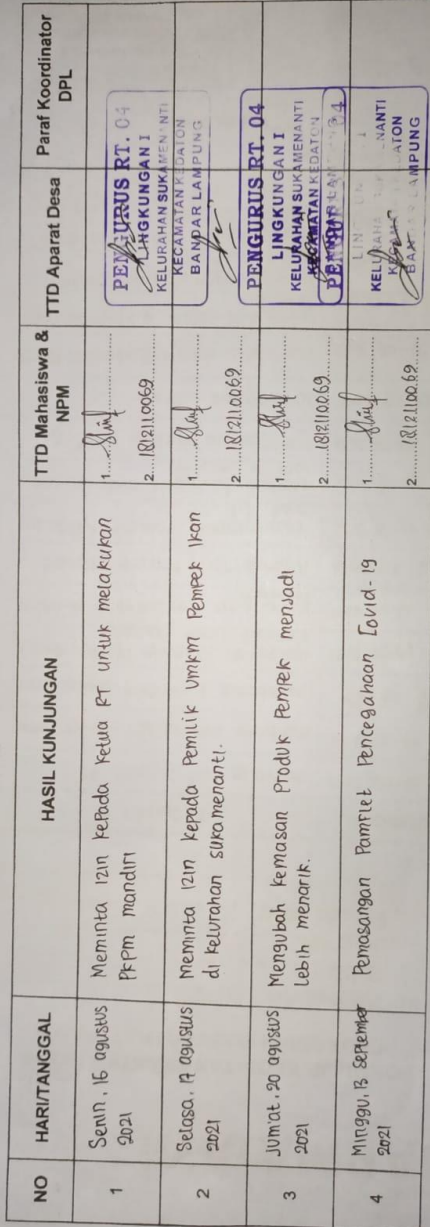 NO
HARI/TANGGAL
HASIL KUNJUNGAN
TTD Mahasiswa &
NPM
TTD Aparat Desa
Paraf Koordinator
DPL
1
Senin, 16 agustus
2021
Meminta Izin kepada Ketua RT untuk melakukan
PKPM mandiri
1....................
2....1812110069
PENGURUS RT. 04
LINGKUNGAN I
KELURAHAN SUKAMENANTI
KECAMATAN KEDATON
BANDAR LAMPUNG
2
Selasa, 17 agustus
2021
Meminta Izin kepada Pemilik UMKM Pempek Ikan
di Kelurahan sukamenanti.
1....................
2....1812110069
3
Jum'at, 20 agustus
2021
Mengubah Kemasan Produk Pempek menjadi
Lebih menarik.
1....................
2....1812110069
PENGURUS RT. 04
LINGKUNGAN I
KELURAHAN SUKAMENANTI
KECAMATAN KEDATON
4
Minggu, 13 September
2021
Pemasangan Pamflet Pencegahaan Covid-19
1....................
2....1812110069
04
NANTI
ATON
LAMPUNG